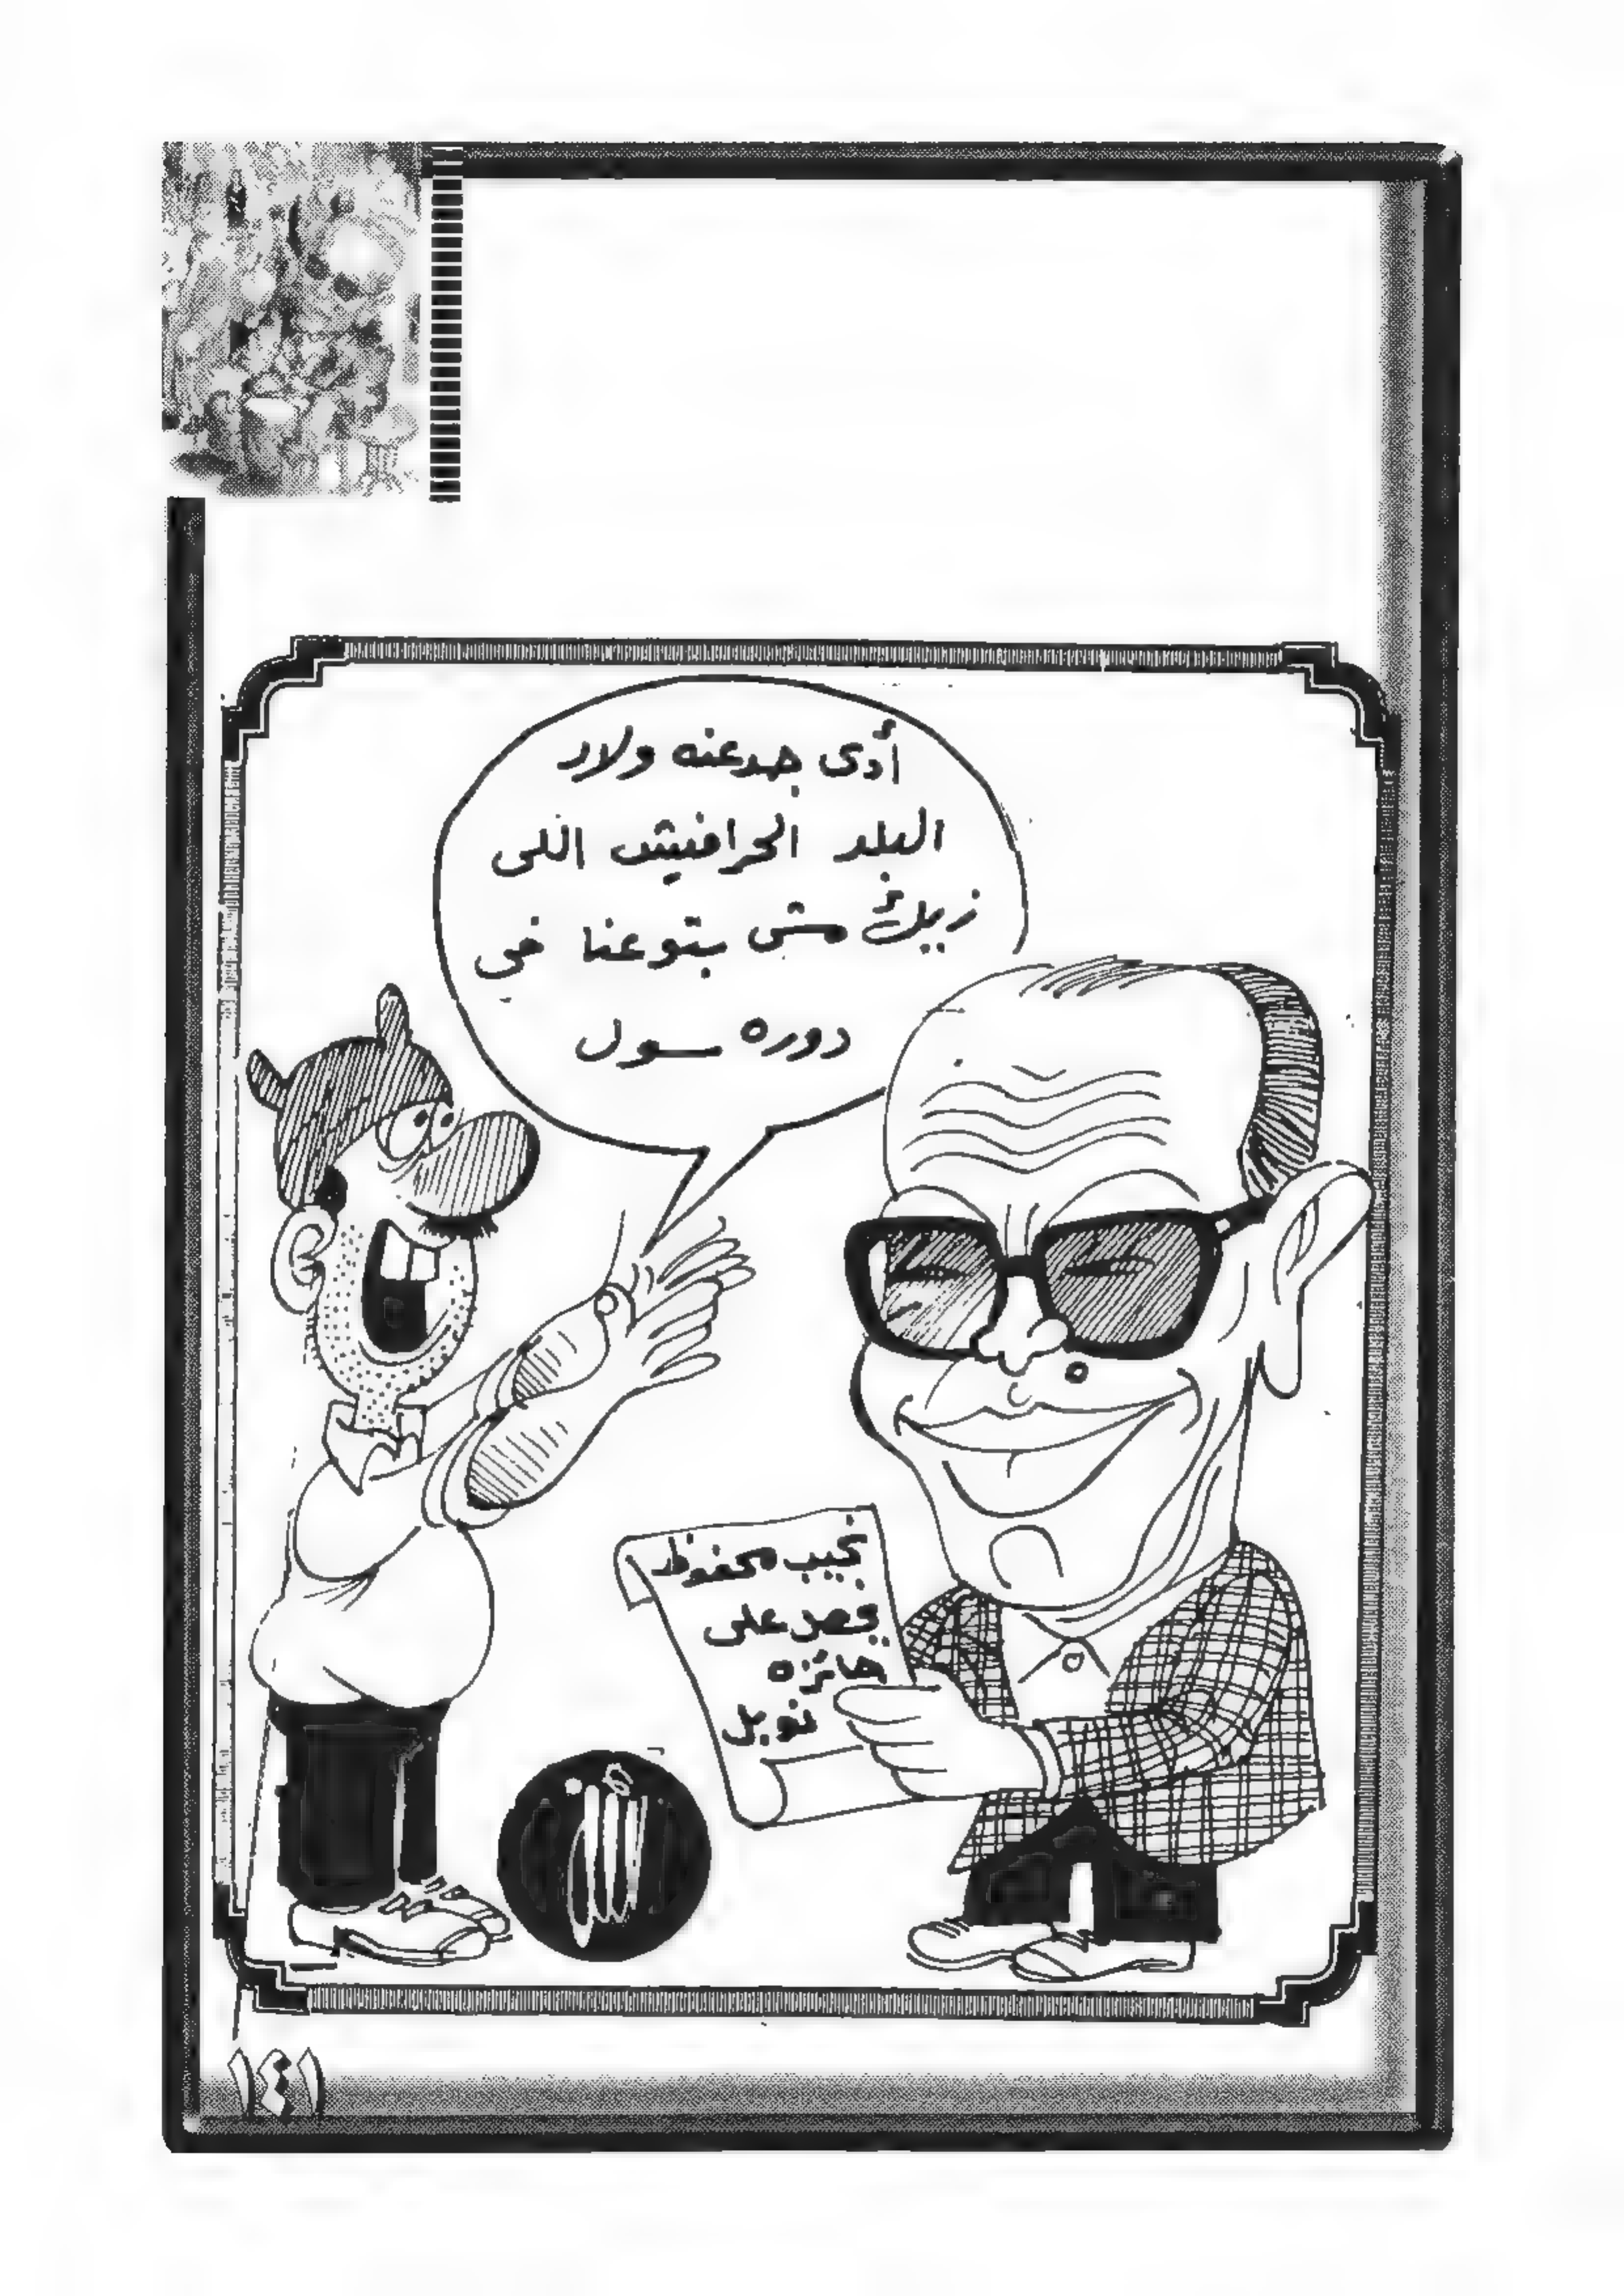 أدى جدعنه ولاد
البلد الحرافيش اللى
زيك مش بتوعنا فى
دوره سول
نجيب محفوظ
يحصد على
جائزه
نوبل
١٤١